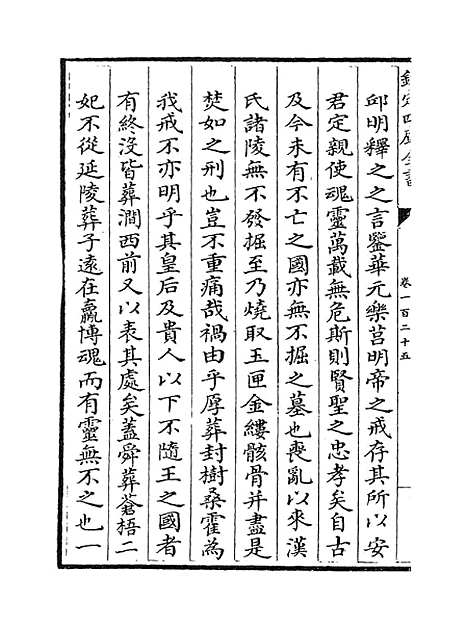 欽定四庫全書
卷一百二十五
邱明釋之之言鑒華元樂莒明帝之戒存其所以安
君定親使魂靈萬載無危斯則賢聖之忠孝矣自古
及今未有不亡之國亦無不掘之墓也喪亂以來漢
氏諸陵無不發掘至乃燒取玉匣金縷骸骨并盡是
焚如之刑也豈不重痛哉禍由乎厚葬封樹桑霍為
我戒不亦明乎其皇后及貴人以下不隨王之國者
有終沒皆葬澗西前又以表其處矣蓋舜葬蒼梧二
妃不從延陵葬子遠在嬴博魂而有靈無不之也一